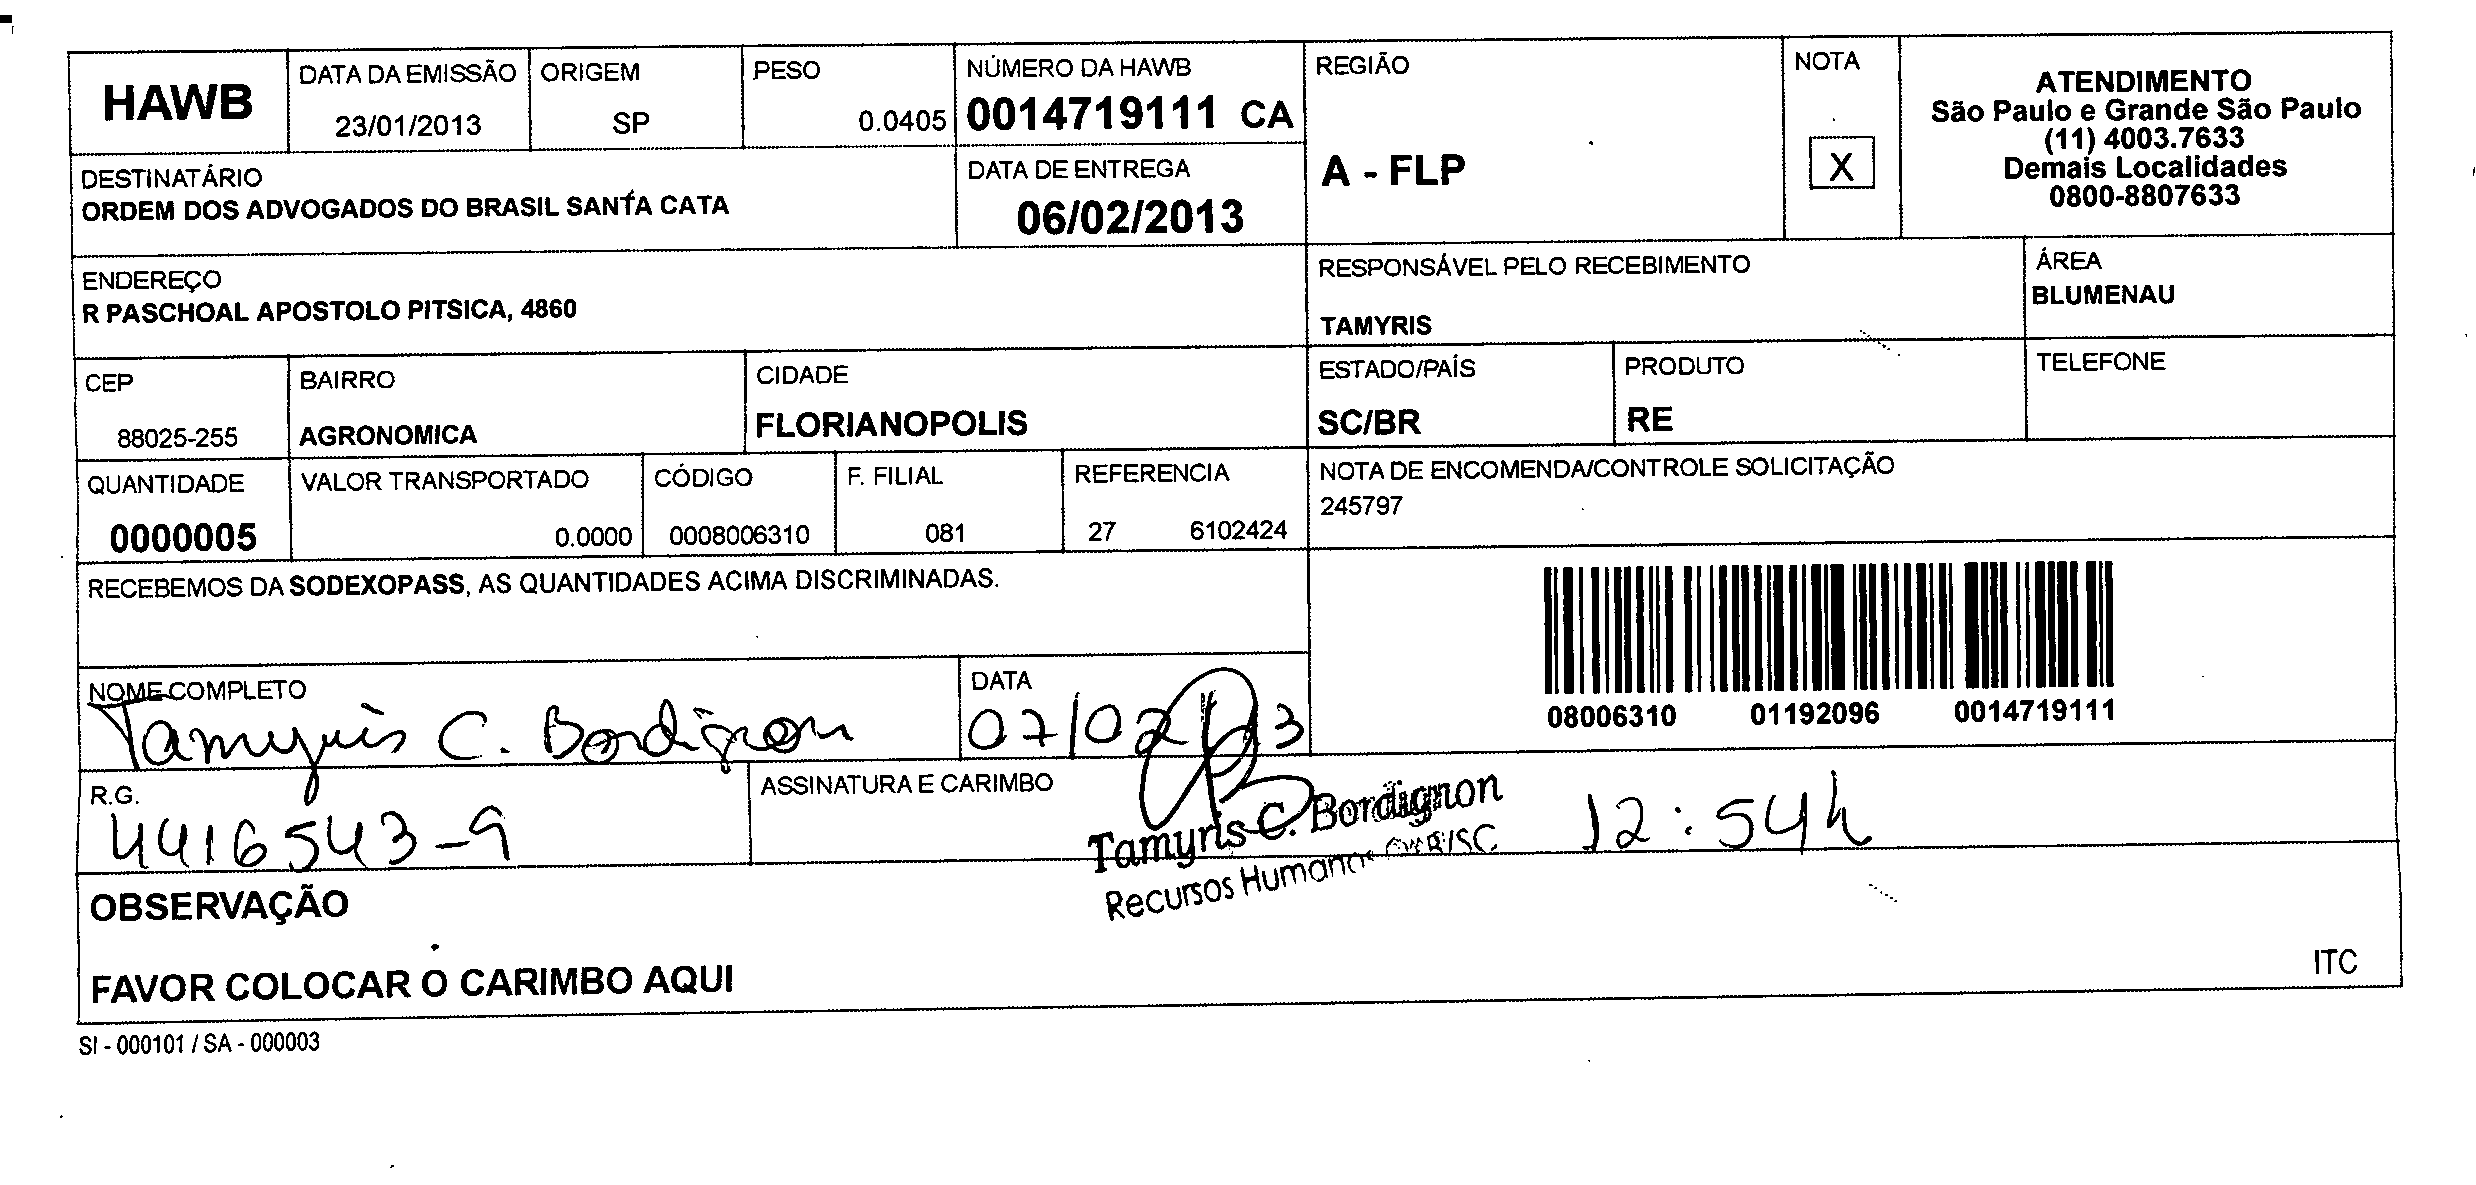 HAWB
DATA DA EMISSÃO
23/01/2013
ORIGEM
SP
PESO
0.0405
NÚMERO DA HAWB
0014719111 CA
REGIÃO
A - FLP
NOTA
X
ATENDIMENTO
São Paulo e Grande São Paulo
(11) 4003.7633
Demais Localidades
0800-8807633
DESTINATÁRIO
ORDEM DOS ADVOGADOS DO BRASIL SANTA CATA
DATA DE ENTREGA
06/02/2013
ENDEREÇO
R PASCHOAL APOSTOLO PITSICA, 4860
RESPONSÁVEL PELO RECEBIMENTO
TAMYRIS
ÁREA
BLUMENAU
CEP
88025-255
BAIRRO
AGRONOMICA
CIDADE
FLORIANOPOLIS
ESTADO/PAÍS
SC/BR
PRODUTO
RE
TELEFONE
QUANTIDADE
0000005
VALOR TRANSPORTADO
0.0000
CÓDIGO
0008006310
F. FILIAL
081
REFERENCIA
27 6102424
NOTA DE ENCOMENDA/CONTROLE SOLICITAÇÃO
245797
RECEBEMOS DA SODEXOPASS, AS QUANTIDADES ACIMA DISCRIMINADAS.
08006310 01192096 0014719111
NOME COMPLETO
Tamyris C. Bordignon
DATA
07/02/13
R.G.
4416543-9
ASSINATURA E CARIMBO
Tamyris C. Bordignon
Recursos Humanos OAB/SC
12:54h
OBSERVAÇÃO
FAVOR COLOCAR O CARIMBO AQUI
ITC
SI - 000101 / SA - 000003